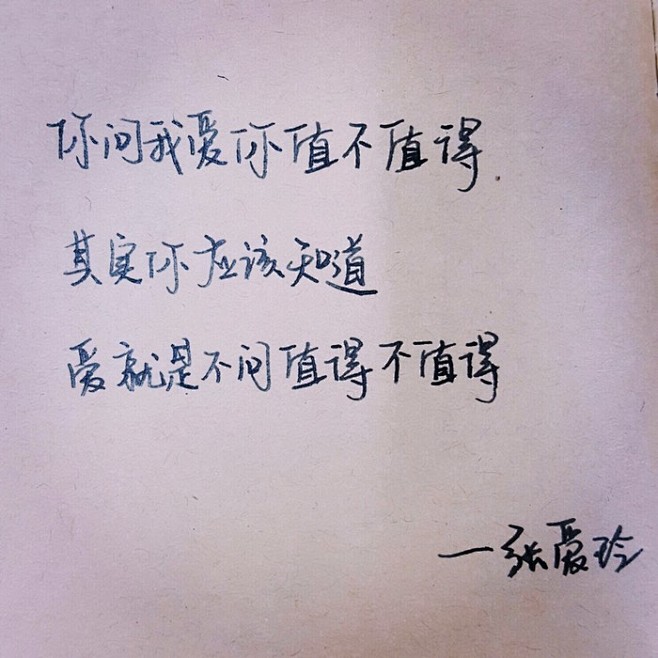 你问我爱你值不值得
其实你应该知道
爱就是不问值得不值得
—张爱玲